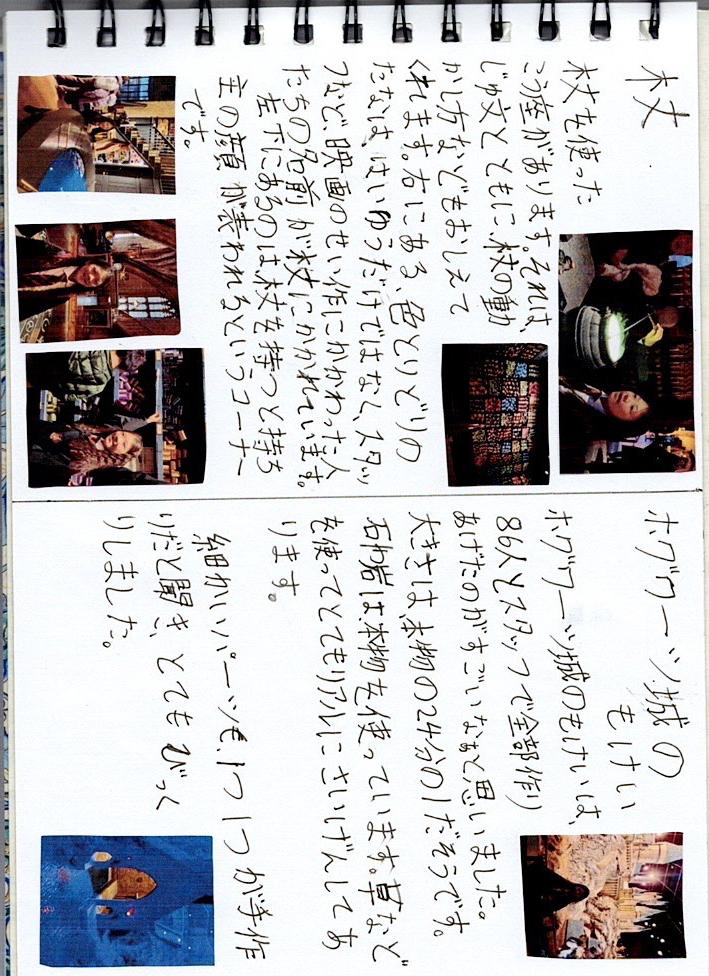 杖
杖を使った
こう座があります。それは、
じゅ文とともに、杖の動
かし方などもおしえて
くれます。右にある、色とりどりの
たなは、はいゆうだけではなく、スタッ
フなど、映画のせい作にかかわった人
たちの名前が杖にかかれています。
左下にあるのは杖を持つと持ち
主の顔が表われるというコーナー
です。
ホグワーツ城の
もけい
ホグワーツ城のもけいは、
86人とスタッフで全部作り
あげたのがすごいなぁと思いました。
大きさは、本物の24分の1だそうです。
石や岩は、本物を使っています。草など
を使ってとてもリアルにさいげんしてあ
ります。
細かいパーツも、1つ1つが手作
りだと聞き、とてもびっく
りしました。